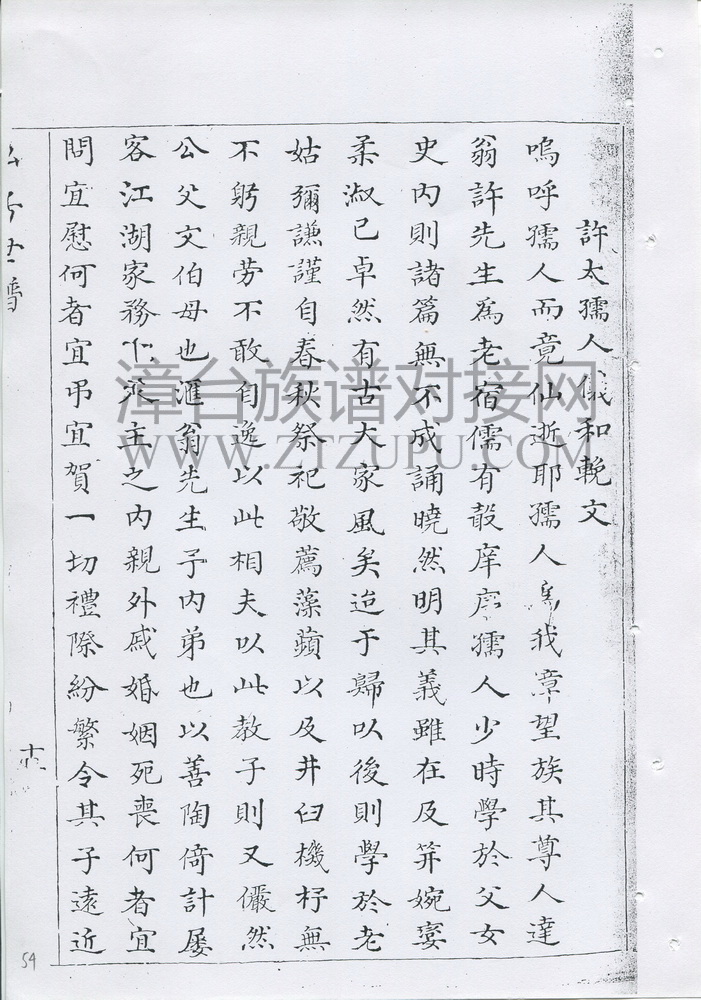 許太孺人儀和輓文
嗚呼孺人而竟仙逝耶孺人為我漳望族其尊人達
翁許先生為老宿儒有聲庠序孺人少時學於父女
史內則諸篇無不成誦曉然明其義雖在及笄婉孌
柔淑已卓然有古大家風矣迨于歸以後則學於老
姑彌謙謹自春秋祭祀敬薦藻蘋以及井臼機杼無
不躬親勞不敢自逸以此相夫以此教子則又儼然
公父文伯母也滙翁先生予內弟也以善陶倚計屢
客江湖家務下 主之內親外戚婚姻死喪何者宜
問宜慰何者宜弔宜賀一切禮際紛繁令其子遠近
十六
54
漳台族谱对接网
WWW.ZTZUPU.COM